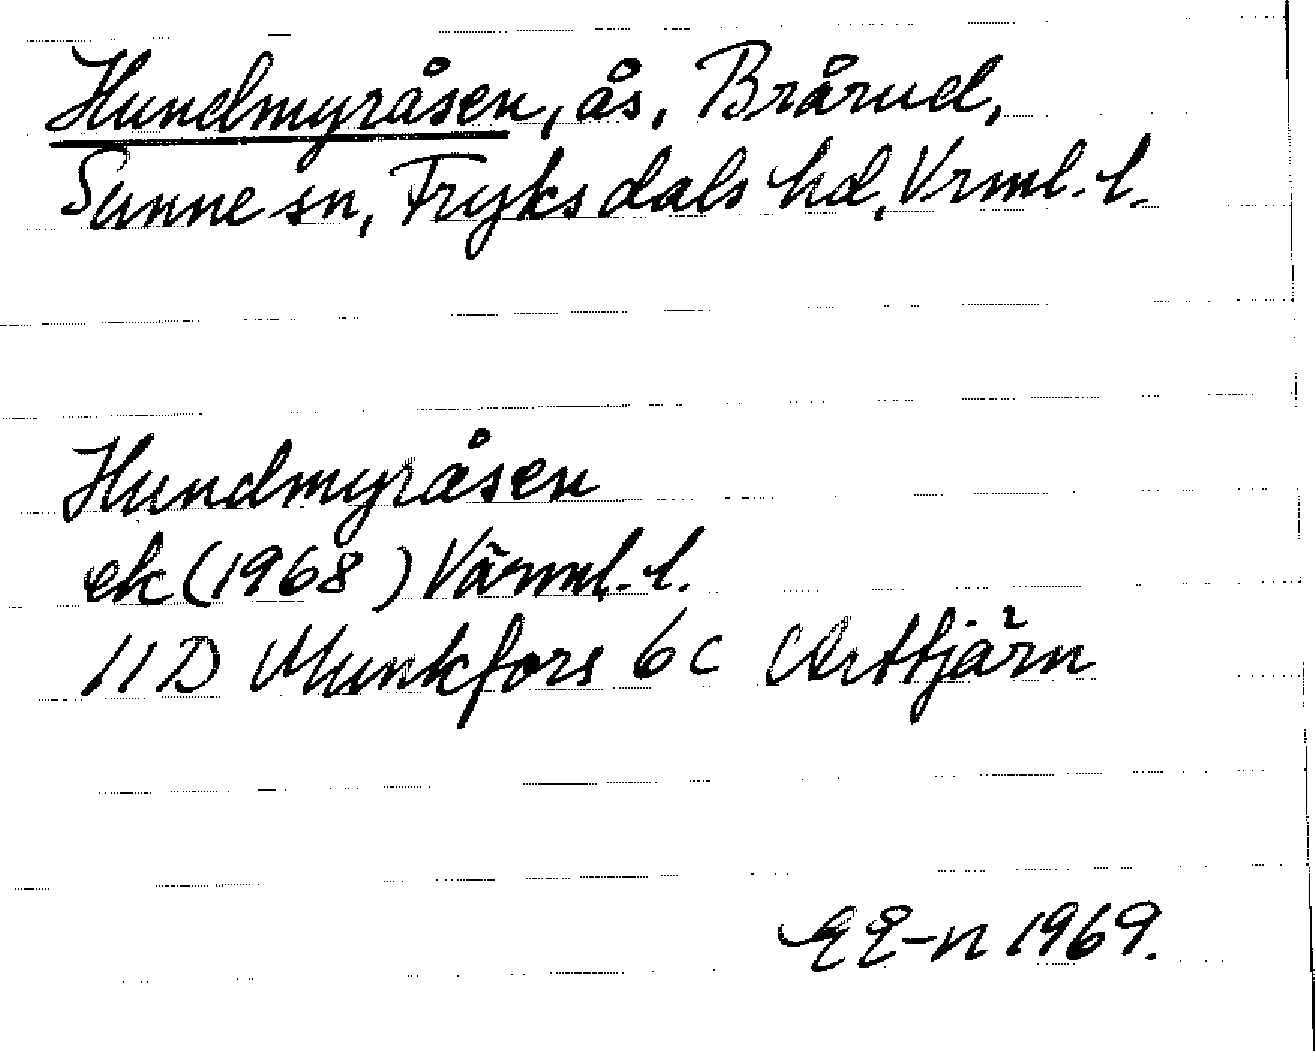 Hundmyråsen, ås, Brårud,
Sunne sn, Fryksdals hd, Vrml. l.
Hundmyråsen
ek (1968) Värml. l.
11D Munkfors 6c
EE-n 1969.